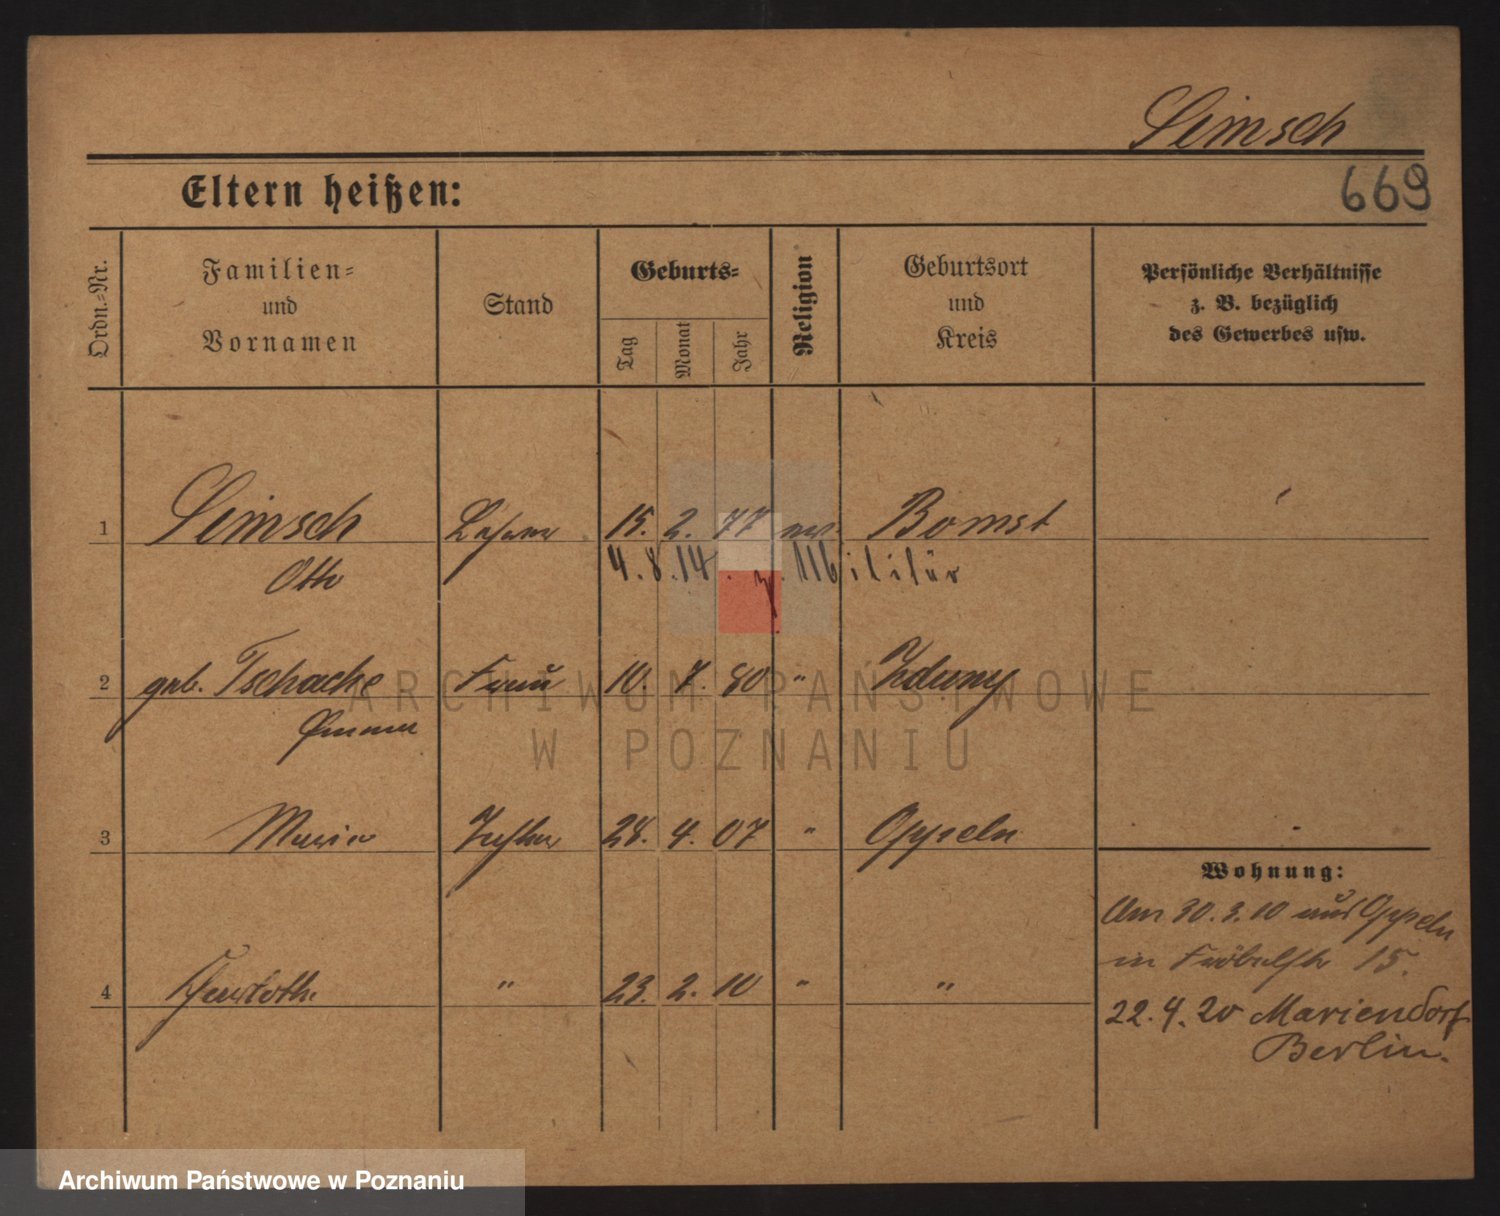 Seimsch
669
Eltern heißen:
Ordn.-Nr.
Familien-
und
Vornamen
Stand
Geburts-
Tag
Monat
Jahr
Religion
Geburtsort
und
Kreis
Persönliche Verhältnisse
z. B. bezüglich
des Gewerbes usw.
1 Seimsch Lehrer 15. 2. 77 ev. Bomst
Otto 4.8.14. z. Militär
2 geb. Tschacke Frau 10. 7. 80 " Zduny
Emma
3 Maria Tochter 28. 4. 07 " Oppeln
Wohnung:
Am 30.3.10 aus Oppeln
in Fröbelstr 15.
4 " 23. 2. 10 " "
22.4.20 Mariendorf
Berlin.
ARCHIWUM PAŃSTWOWE
W POZNANIU
Archiwum Państwowe w Poznaniu